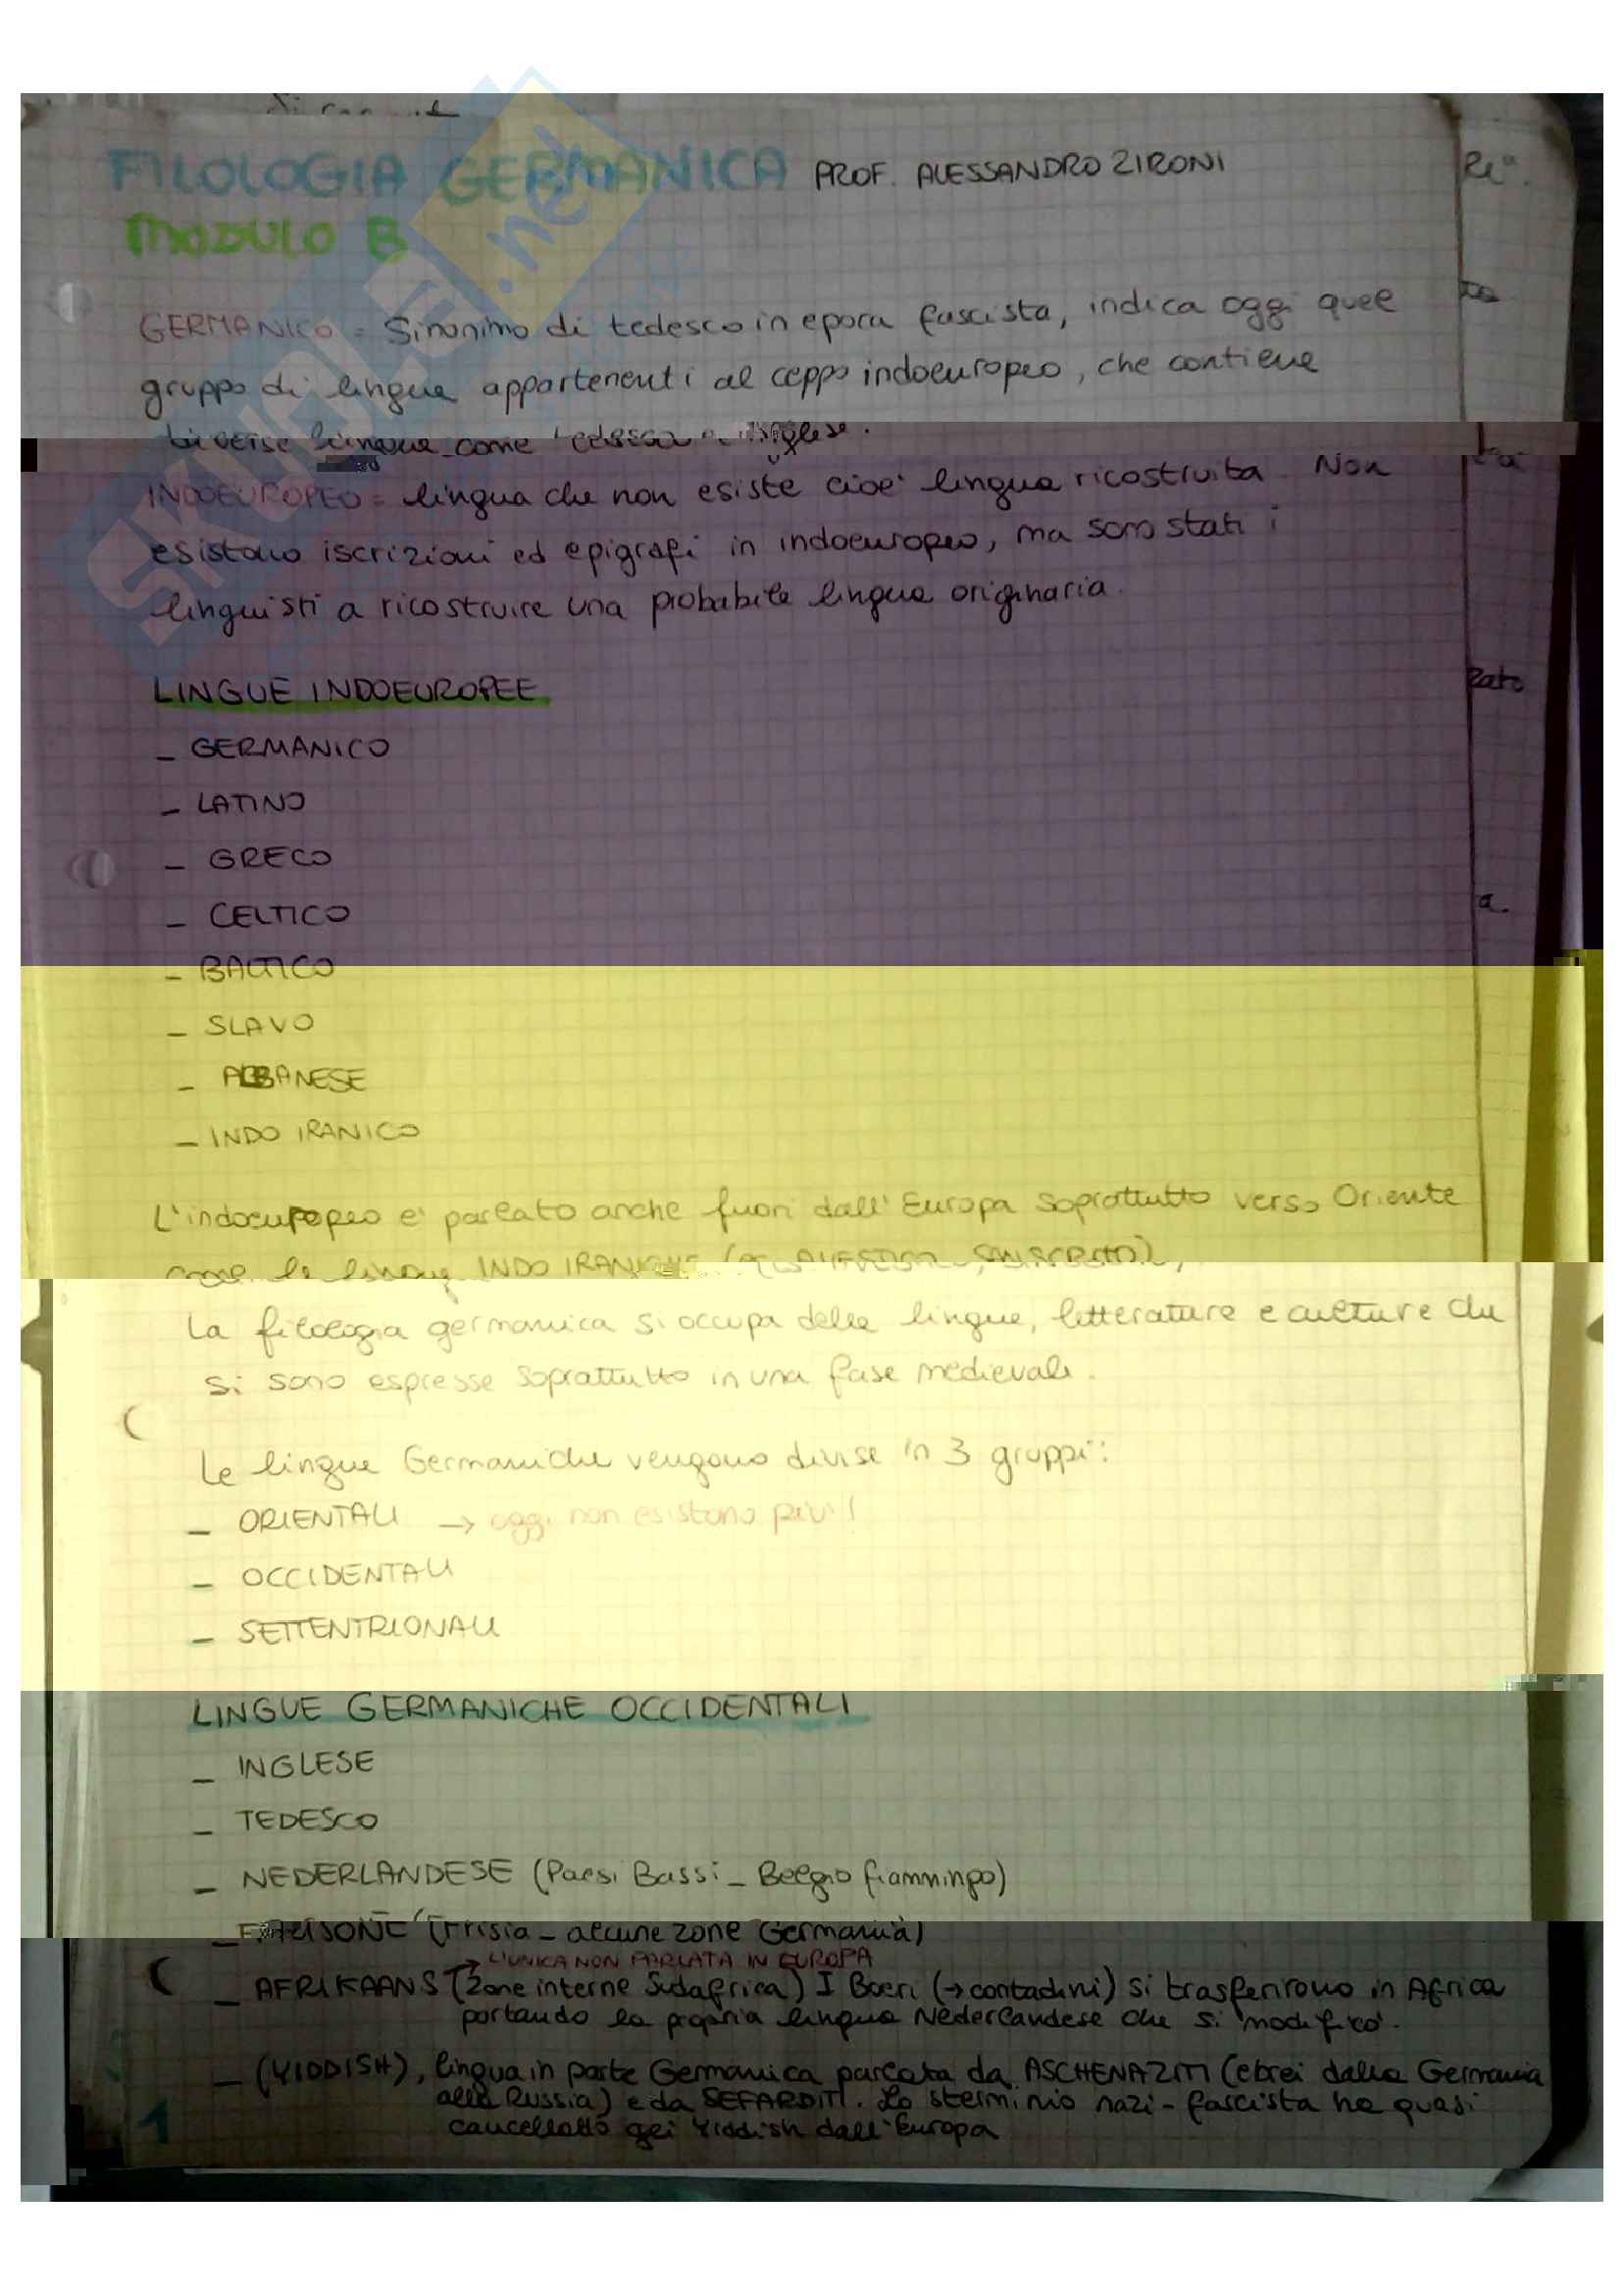 FILOLOGIA GERMANICA PROF. ALESSANDRO ZIRONI
MODULO B
GERMANICO = Sinonimo di tedesco in epoca fascista, indica oggi quel
gruppo di lingue appartenenti al ceppo indoeuropeo, che contiene
diverse lingue come tedesco e inglese.
INDOEUROPEO = lingua che non esiste cioè lingua ricostruita. Non
esistono iscrizioni ed epigrafi in indoeuropeo, ma sono stati i
linguisti a ricostruire una probabile lingua originaria.
LINGUE INDOEUROPEE
- GERMANICO
- LATINO
- GRECO
- CELTICO
- BALTICO
- SLAVO
- ALBANESE
- INDO IRANICO
L'indoeuropeo e' parlato anche fuori dall'Europa soprattutto verso Oriente
come le lingue INDO IRANICHE (es AVESTICO, SANSCRITO),
La filologia germanica si occupa delle lingue, letterature e culture che
si sono espresse soprattutto in una fase medievale.
Le lingue Germaniche vengono divise in 3 gruppi:
- ORIENTALI → oggi non esistono più!
- OCCIDENTALI
- SETTENTRIONALI
LINGUE GERMANICHE OCCIDENTALI
- INGLESE
- TEDESCO
- NEDERLANDESE (Paesi Bassi - Belgio fiammingo)
- FRISONE (Frisia - alcune zone Germania)
→ L'UNICA NON PARLATA IN EUROPA
- AFRIKAANS (Zone interne Sudafrica) I Boeri (→ contadini) si trasferirono in Africa
portando la propria lingua Nederlandese che si modificò.
- (YIDDISH), lingua in parte Germanica parlata da ASCHENAZITI (ebrei dalla Germania
alla Russia) e da SEFARDITI. Lo sterminio nazi-fascista ha quasi
cancellato gli Yiddish dall'Europa
1
SKUOLA.net